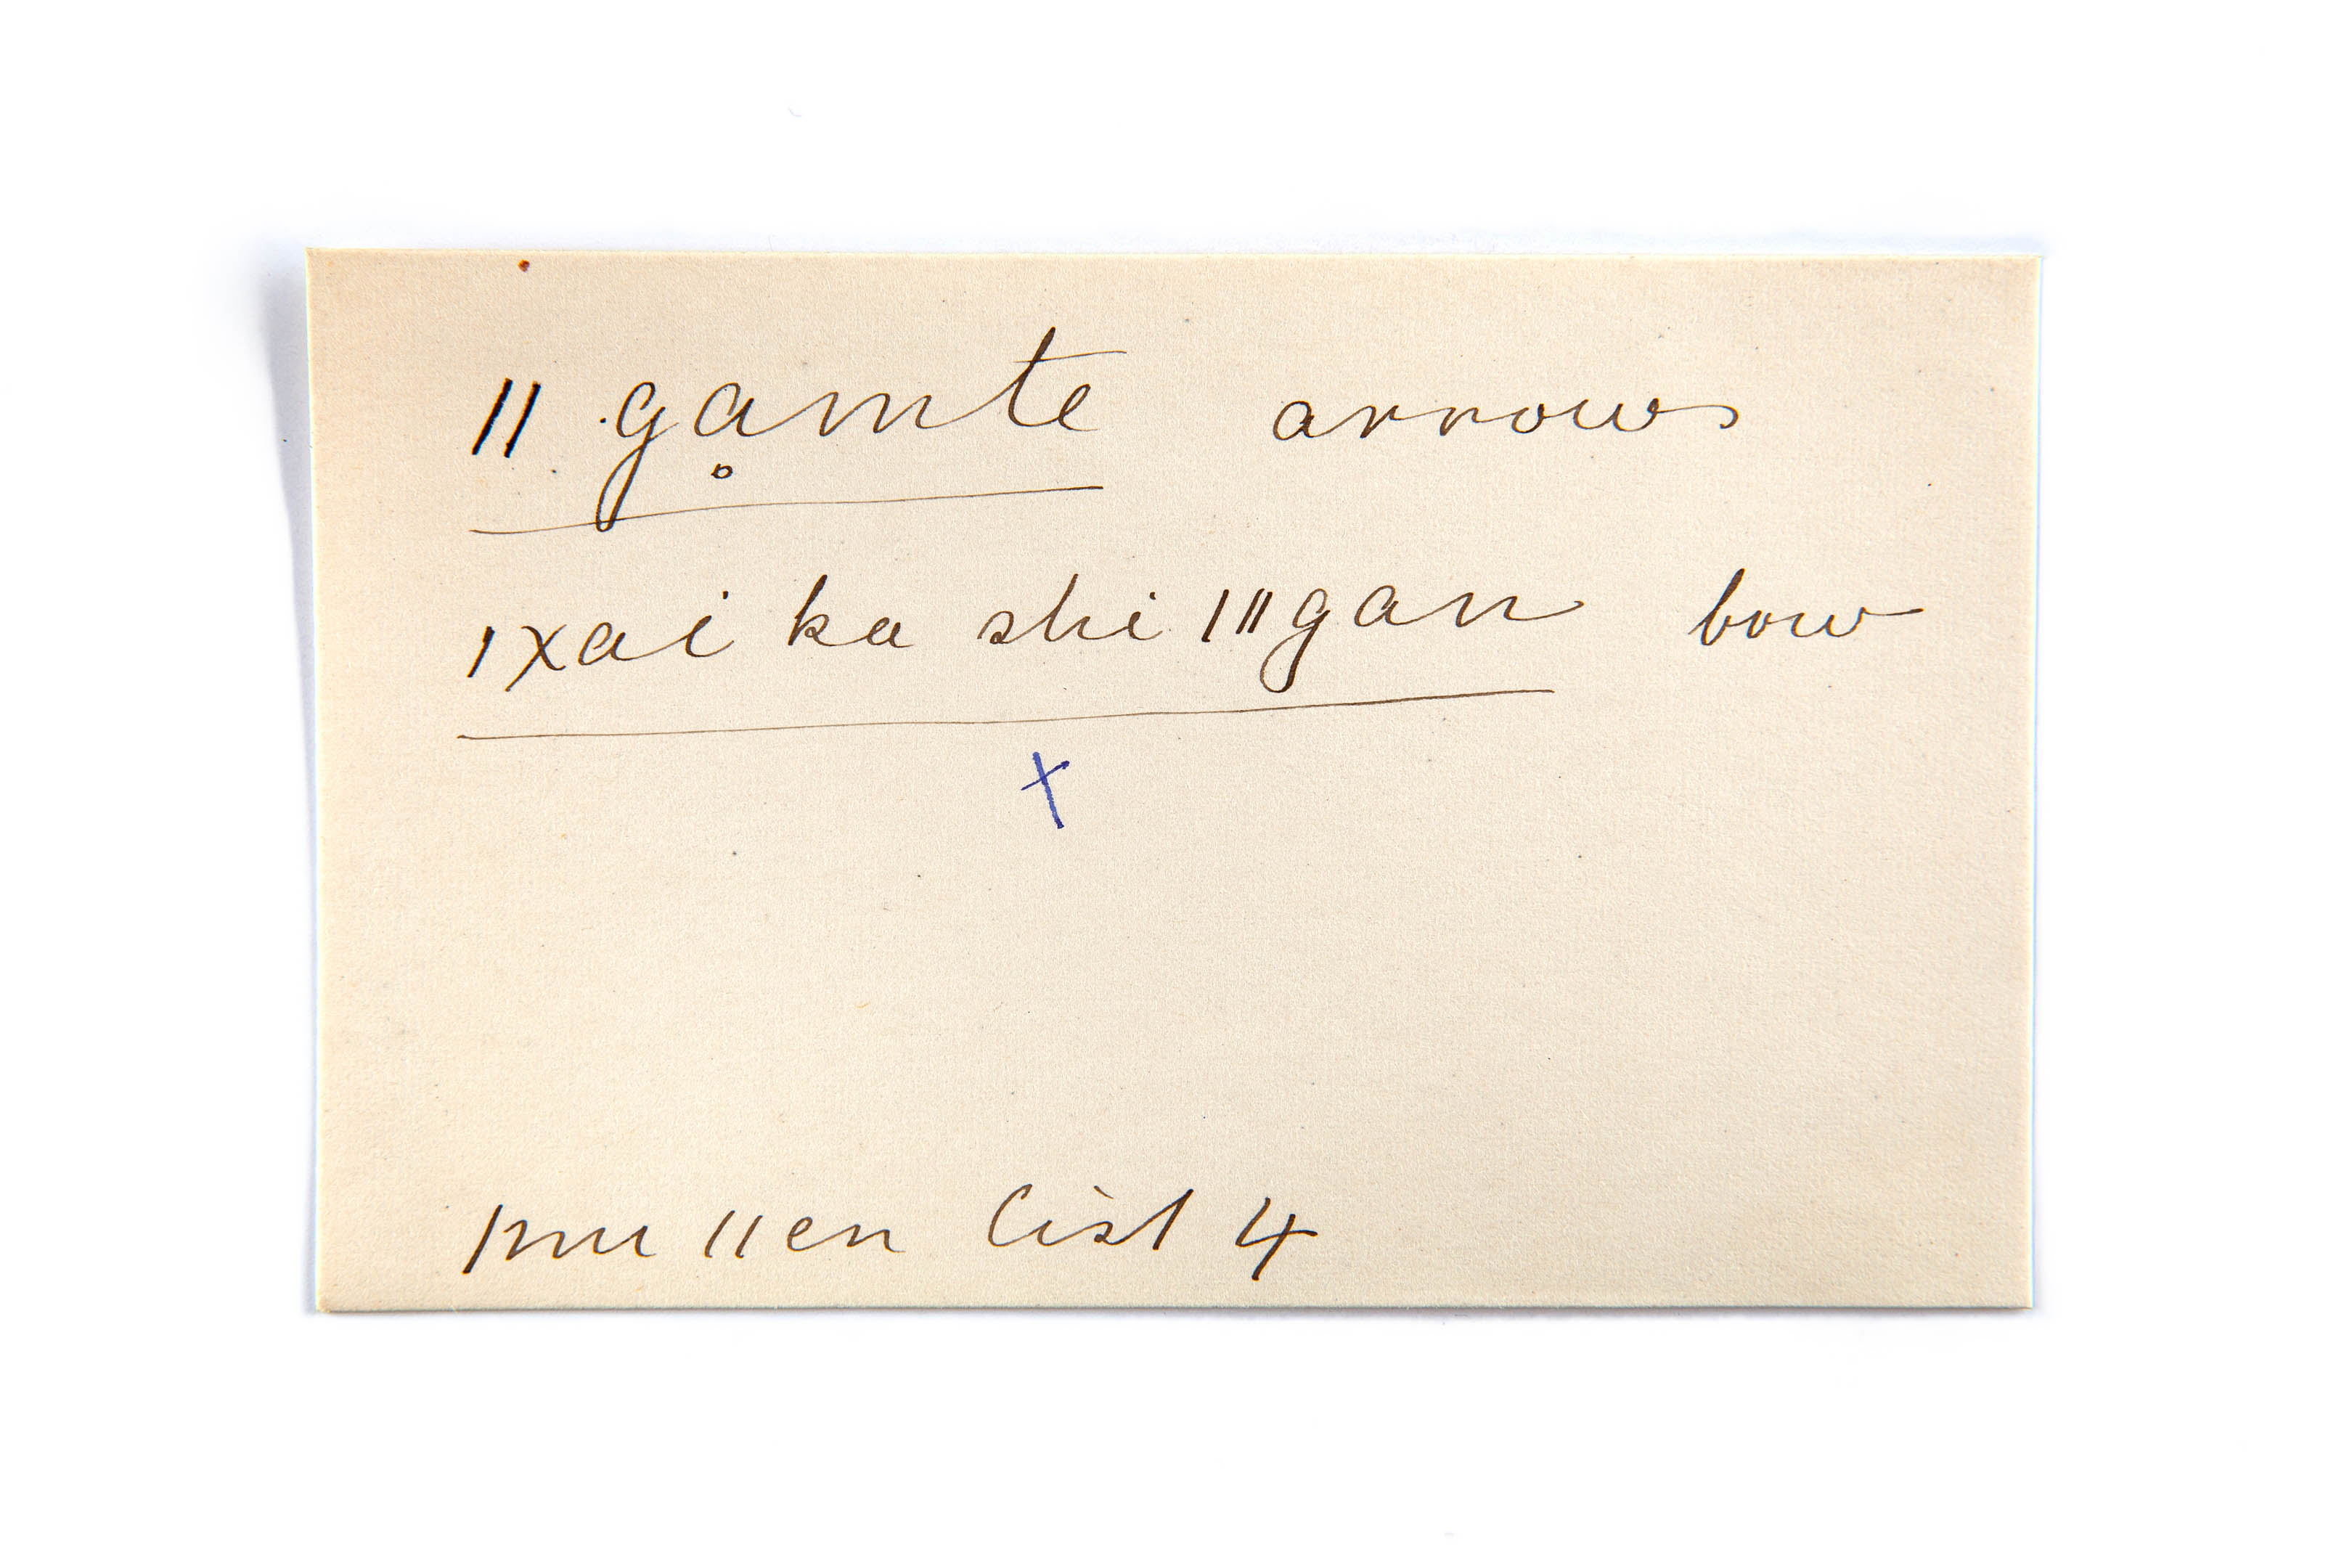 ǁ gḁmte arrows
ǀxai ka shi ǀǁgan bow
x
ǀnu ǁen list 4